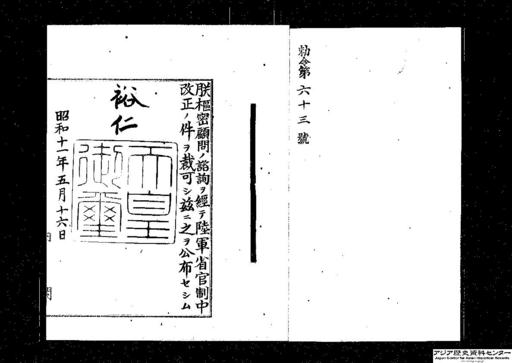 勅令第六十三號
朕樞密顧問ノ諮詢ヲ經テ陸軍省官制中
改正ノ件ヲ裁可シ茲ニ之ヲ公布セシム
裕仁
天皇
御璽
昭和十一年五月十六日
アジア歴史資料センター
Japan Center for Asian Historical Records